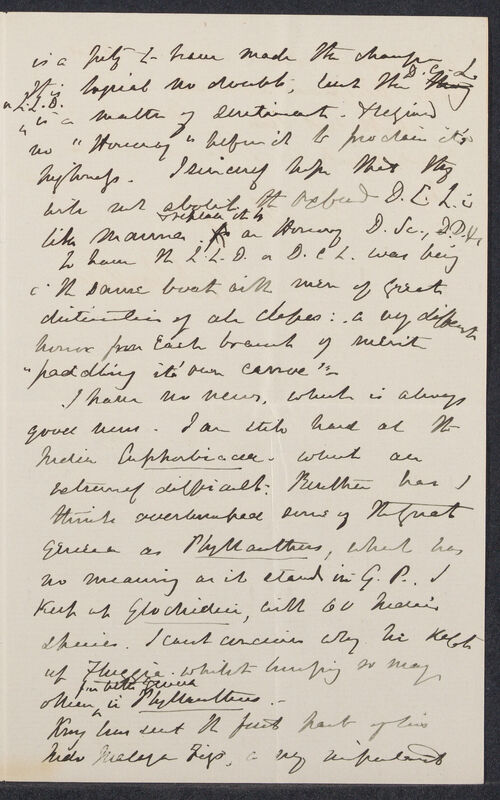 is a pity to have made the change
It is logical no doubt, but the D.C.L.
or L.L.D.
is a matter of sentiment. & required
no "Honorary" before it to proclaim its
highness. I sincerely hope that they
will not abolish the Oxford D.C.L. in
like manner & replace it by an Honorary D. Sc., D.D. &c
To have the L.L.D. or D.C.L. was being
in the same boat with men of great
distinction of all classes: a very different
honor from each branch of merit
"paddling its own canoe".
I have no news, which is always
good news. I am still hard at the
Indian Euphorbiaceae. which are
extremely difficult. Bentham has I
think overlumped some of the great
genera as Phyllanthus, which has
no meaning as it stands in G. P. I
keep up Glochidion, with 60 Indian
species. I cant conceive why he kept
up Flueggia whilst lumping so many
other far better genera in Phyllanthus.
King has sent the first part of his
Indo Malayan Figs, a very important